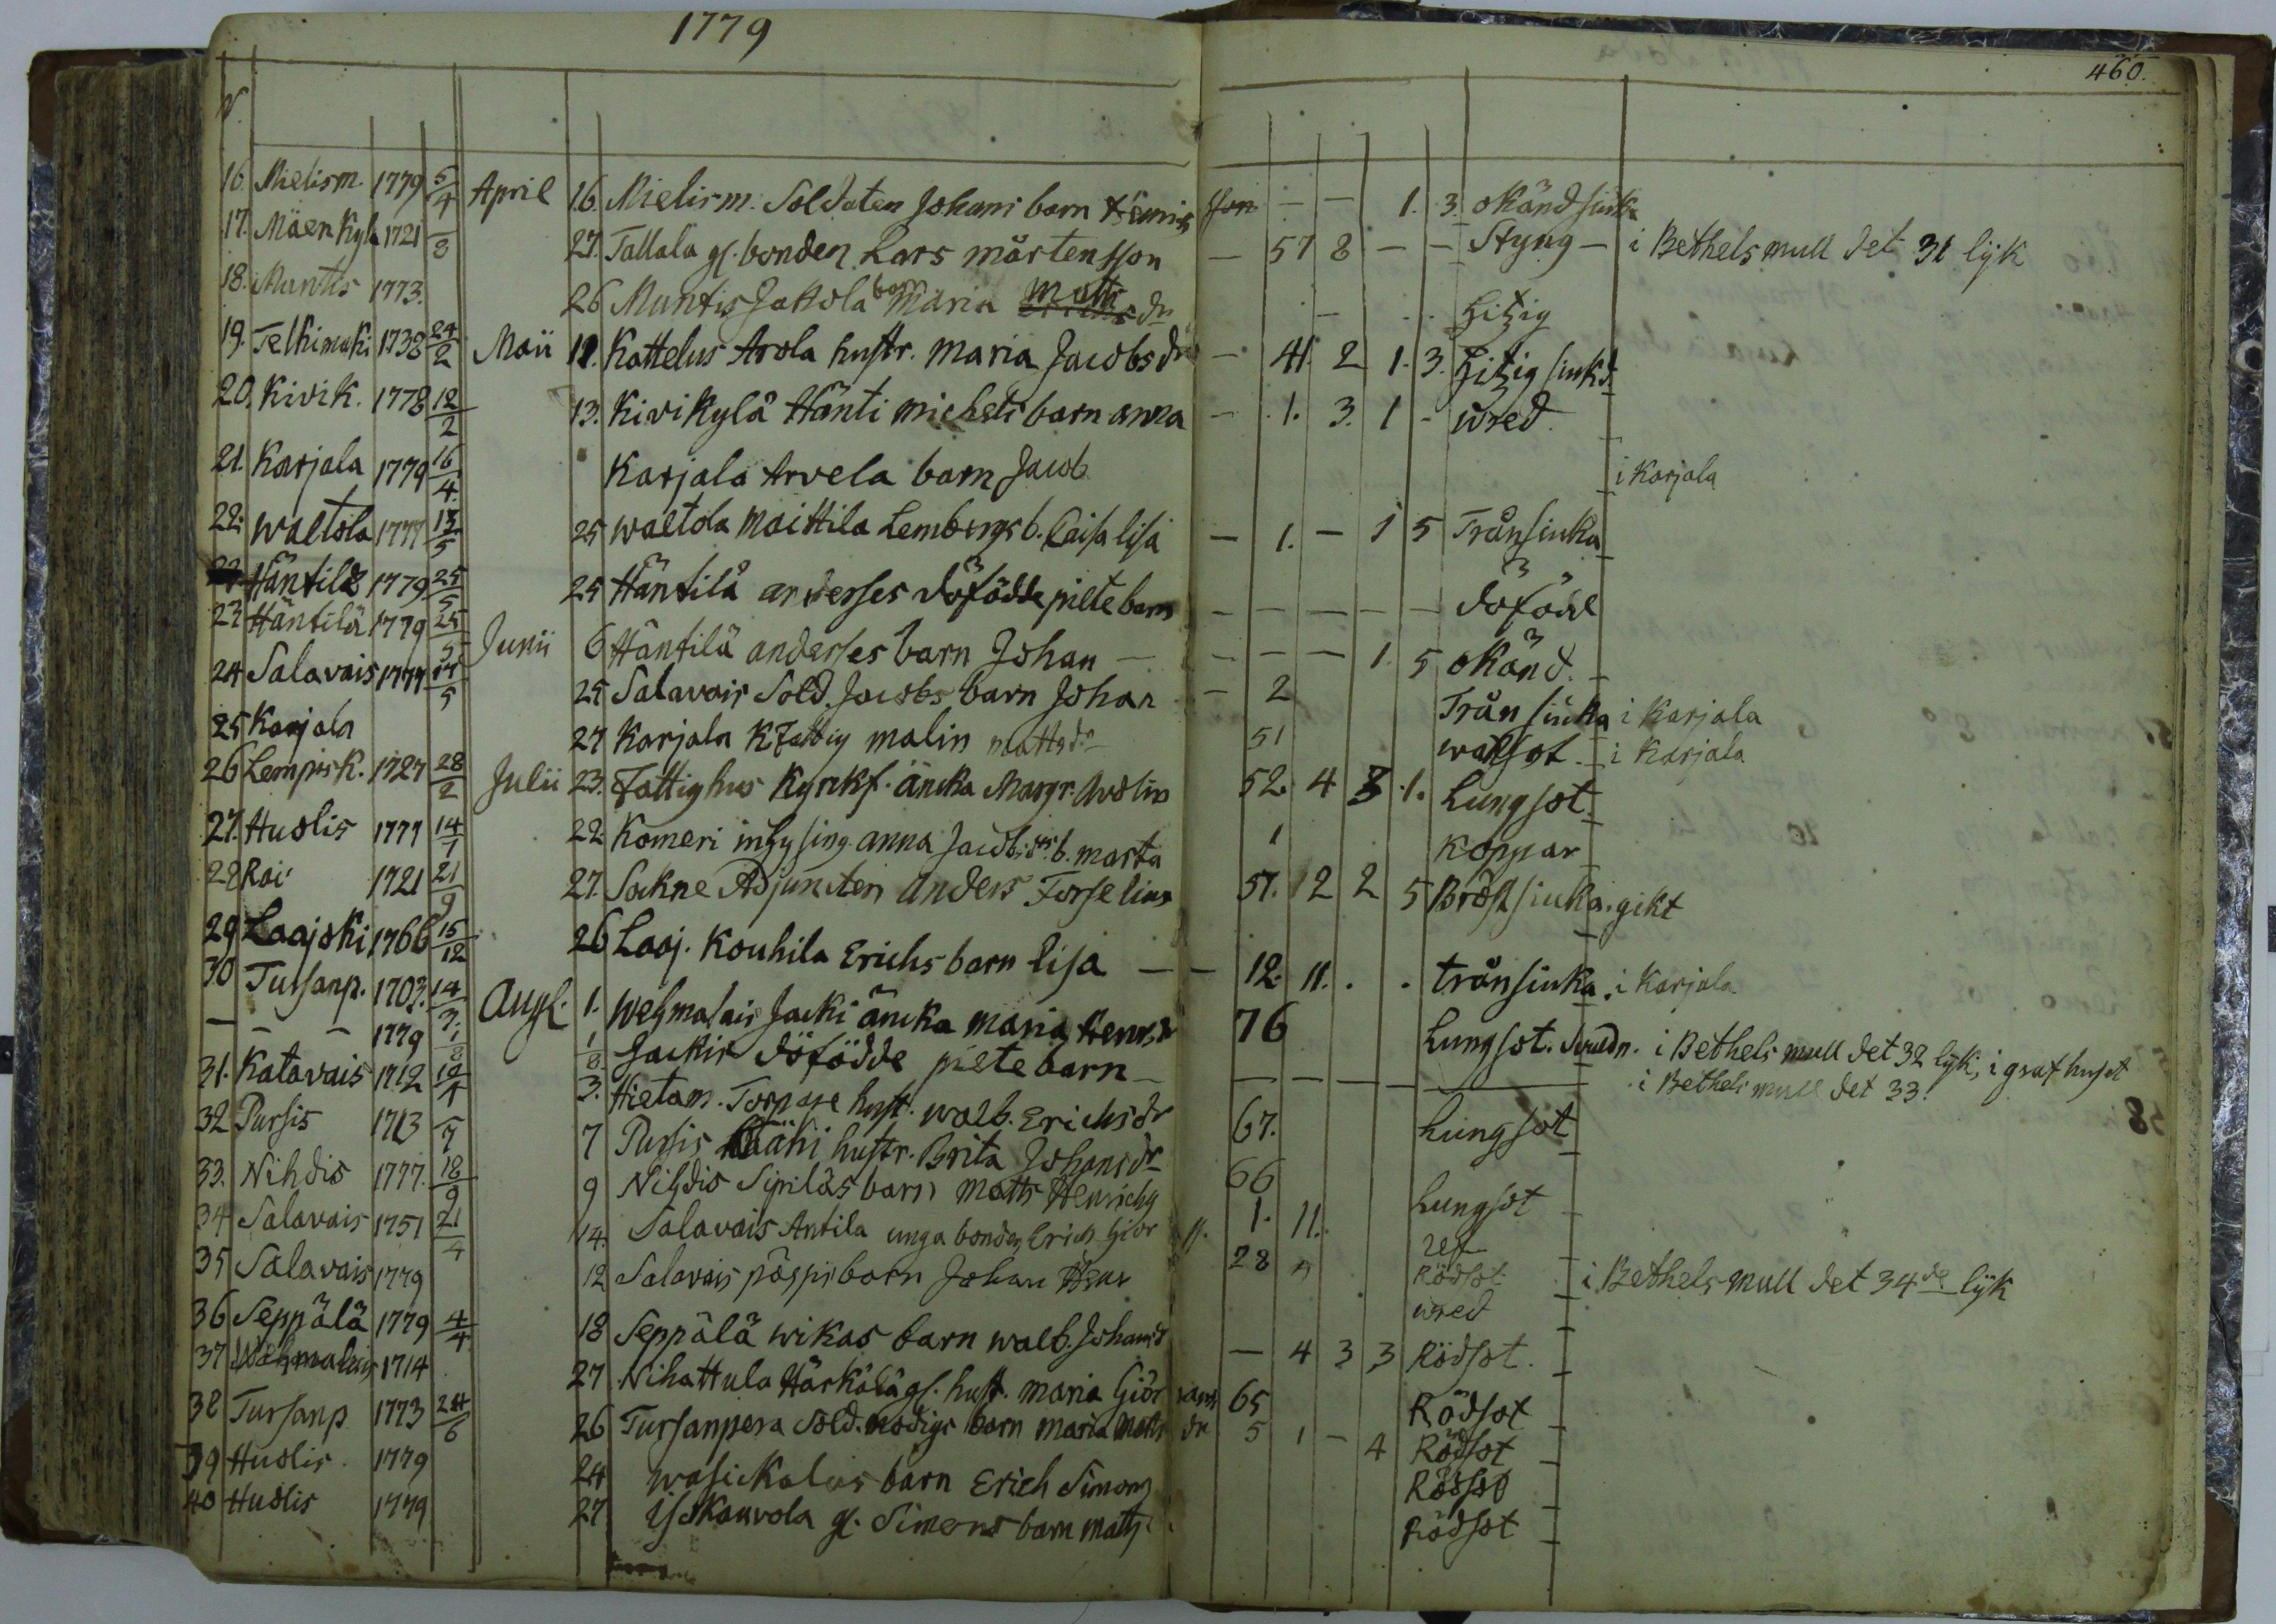 1779
460.
N.
16. Mielism. 1779 5/4 April 16. Mielism. Soldaten Johans barn Henrics son — — 1. 3. okänd siuka
17. Mäenkylä 1721 /8 27. Tallala gl. bonden Lars mårtensson — 57 8 — — Styng — i Bethels mull det 31 lyk
18. Muntis 1773. 26 Muntis Jakola barn Maria Matts dr — hitzig
19. Telkimäki 1738 24/2 Maii 11. Kattelus Arola hustr. Maria Jacobs dr — 41. 2 1. 3. hitzig siukd.
20. Kivik. 1778 12/2 13. Kivikylä Hänti michels barn anna — 1. 3. 1 - wred.
21. Karjala 1779 16/4. Karjala Arvela barn Jacob i Karjala
22. waltola 1777 13/5 25 waltola Maittila Lembergs b. Caisa lisa — 1. — 1 5 Trånsiuka
Häntilä 1779 25/5 25 Häntilä anderses döfödde pilte barn — — — — — döfödd
23 Häntilä 1779 25/5 Junii 6 Häntilä anderses barn Johan — — — — 1. 5 okänd.
24 Salavais 1777 /5 25 Salavais Sold. Jacobs barn Johan — 2 Trånsiuka i Karjala
25 Karjala 27 Karjala Kfattig malin mattsdr 51 wattsot. i Karjala
26 Lempisk. 1727 28/2 Julii 23. Fattighus Kyrkf. äncka Margr. 52. 4 3 1. Lungsot.
27. Huolis 1777 14/1 22. Komeri inhysing. anna Jacobsdrs b. marta 1 Koppar
28 Roi 1721 21/9 27. Sockne Adjuncten Anders Forselius 57. 12 2 5 Bröstsiuka. gikt
29 Laajoki 1766 15/12 26 Laaj. Kouhila Erichs barn lisa — — 12. 11. . . trånsiuka. i Karjala
30 Tursanp. 1703. 14/3. Aug. 1. Wehmalais Jacki äncka maria Henrsdr 76 Lungsot. i Bethels mull det 32 lyk, i grafhuset
— — — 1779 1/8 1/8. Jackis döfödde pilte barn — — — — — i Bethels mull det 33.
31. Katavais 1712 12/1 3. Hietam. Torpare hustr. walb. Erichsdr 67. Lungsot
32 Pursis 1713 /7 7 Pursis hustr. Brita Johansdr 66 Lungsot
33. Nihdis 1777. 18/9 9 Nihdis Sipiläs barn matts Henrichs 1. 11. ref
34 Salavais 1751 21/4 14. Salavais Antila unga bonden Erich Giör s. 28 Rödsot i Bethels mull det 34de lyk
35 Salavais 1779 12 Salavais barn Johan Henr wred
36 Seppälä 1779 4/4 18 Seppälä wikas barn walb. Johansd — 4 3 3 Rödsot.
37 Wehmalais 1714 27 Nihattula Härkälä gl. hust. maria Giör 65 Rödsot
38 Tursanp 1773 24/6 26 Tursanpera Sold. modigs barn maria Matts dr 5 1 — 4 Rödsot
39 Huolis 1779 24 wasikalas barn Erich Simons Rödsot
40 Huolis 1779 27 Iso Kauvola gl. Simons barn matts Rödsot